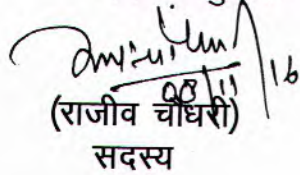 08/11/16
(राजीव चौधरी)
सदस्य